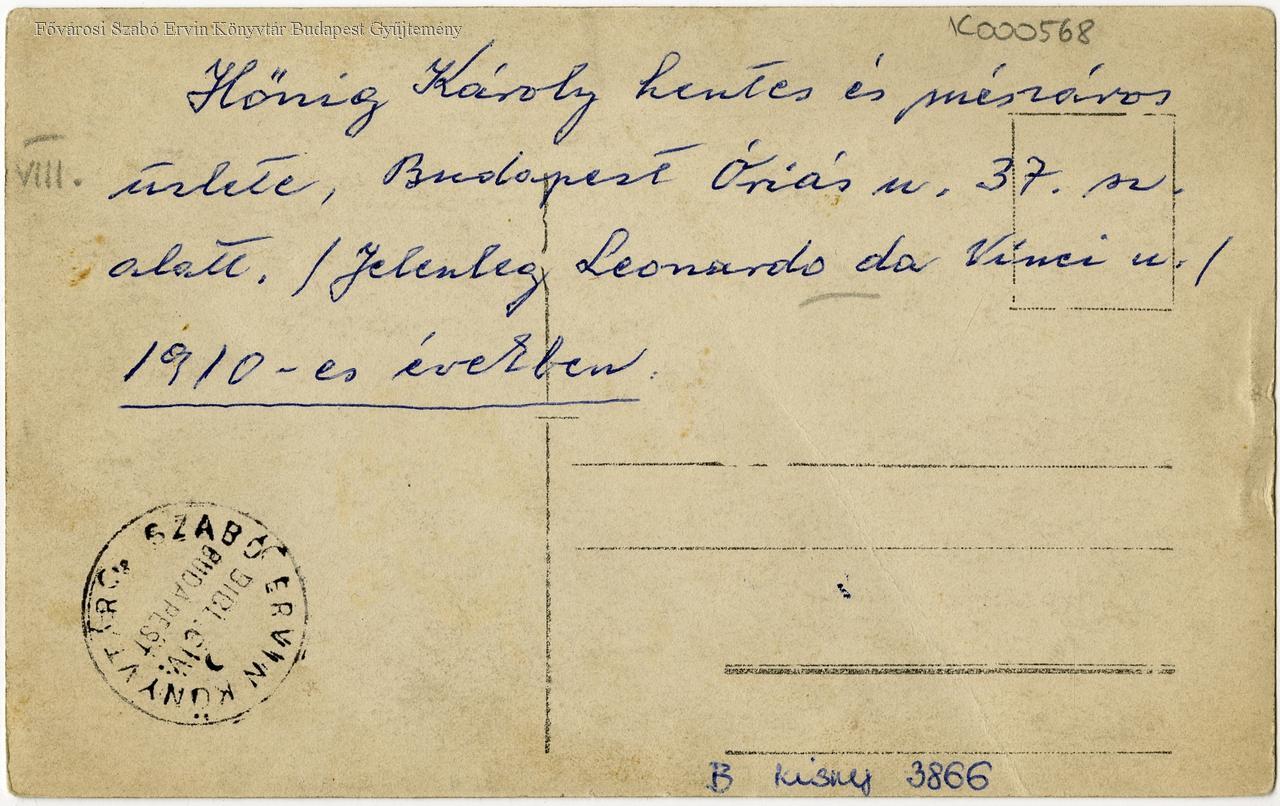 Fővárosi Szabó Ervin Könyvtár Budapest Gyűjtemény
K000568
Hőnig Károly hentes és mészáros
VIII.
üzlete, Budapest Óriás u. 37. sz.
alatt. /Jelenleg Leonardo da Vinci u./
1910-es években.
SZABÓ ERVIN KÖNYVTÁR
BIBL. CIV.
BUDAPEST
B kisny 3866